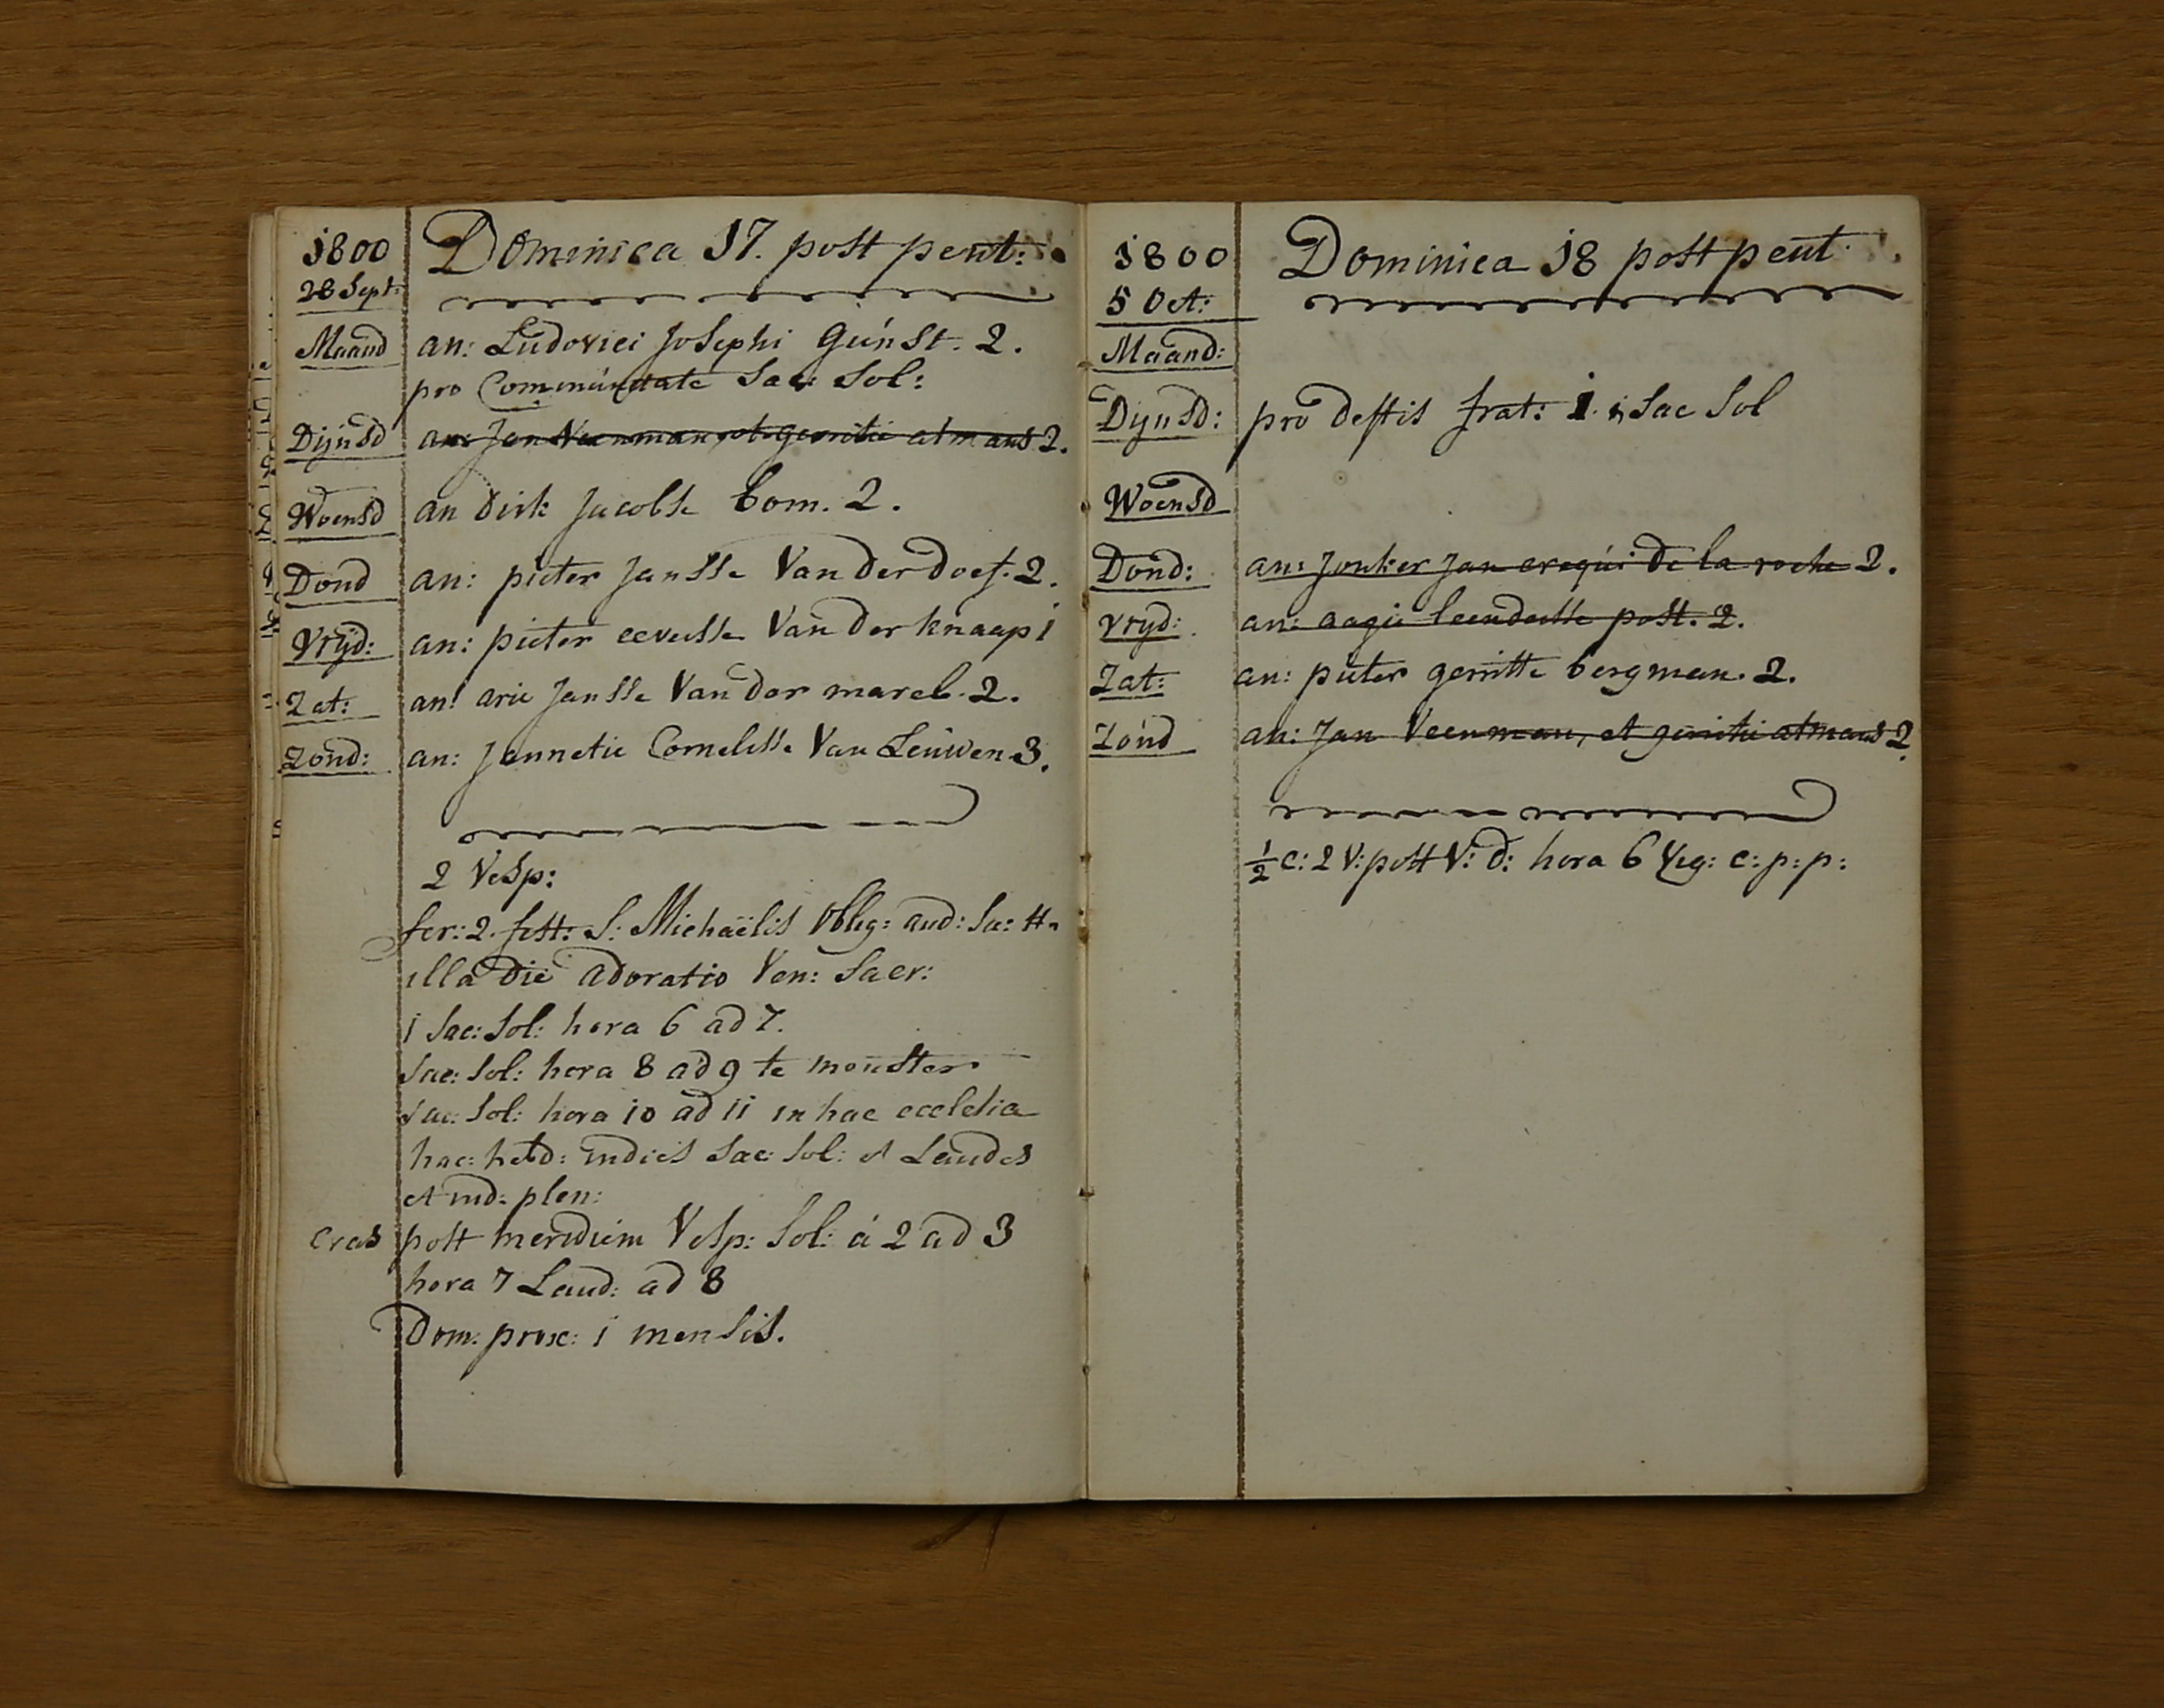 1800 Dominica 17. post pent:
28 Sept:
Maand an: Ludovici Josephi Gunst. 2.
pro Communitate Sac: Sol:
Dijnsd an: Jan Veenman, et gerritie atmans 2.
Woensd an Dirk Jacobse Com. 2.
Dond an: pieter Jansse Van der Doef. 2.
Vrijd: an: pieter eevertse Van der knaap 1
Zat: an: arie Jansse Van der marel. 2.
Zond: an: Jannetie Cornelisse Van Leuwen. 3.
2 Vesp:
fer: 2. fest: S: Michaëlis Oblig: aud: Sa:
illa die adoratio Ven: Sacr:
1 Sac: Sol: hora 6 ad 7.
Sac: Sol: hora 8 ad 9 te monster
Sac: Sol: hora 10 ad 11 in hac ecclesia
hac: hebd: indies Sac: Sol: et Laudes
et ind: plen:
cras post meridiem Vesp: Sol: á 2 ad 3
hora 7 Laud: ad 8
Dom: prox: 1 mensis.
1800 Dominica 18 post pent
5 Oct:
Maand:
Dijnsd: pro deftis frat: 1. Sac Sol
Woensd
Dond: an: Jonker Jan crequi de la roche 2.
Vryd: an: aagie leendertse post. 2.
Zat: an: pieter gerritse bergman. 2.
Zond an: Jan Veenman, et gerritie atmans 2.
½ c: 2 V: post V: d: hora 6 Vig: c: p: p: